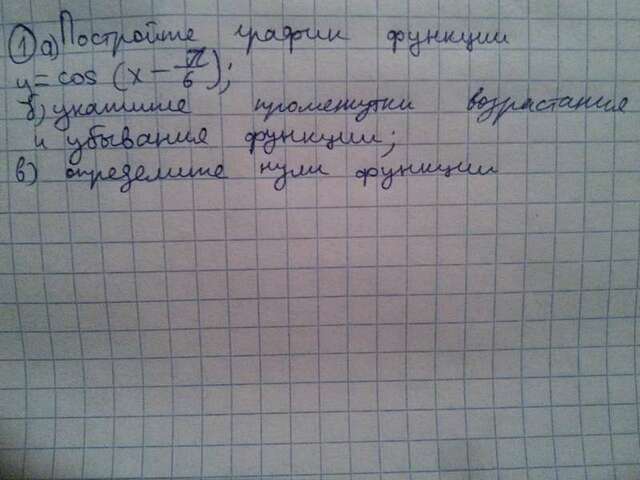 ① а) Постройте график функции
y = cos (x − π/6);
б) укажите промежутки возрастания
и убывания функции;
в) определите нули функции